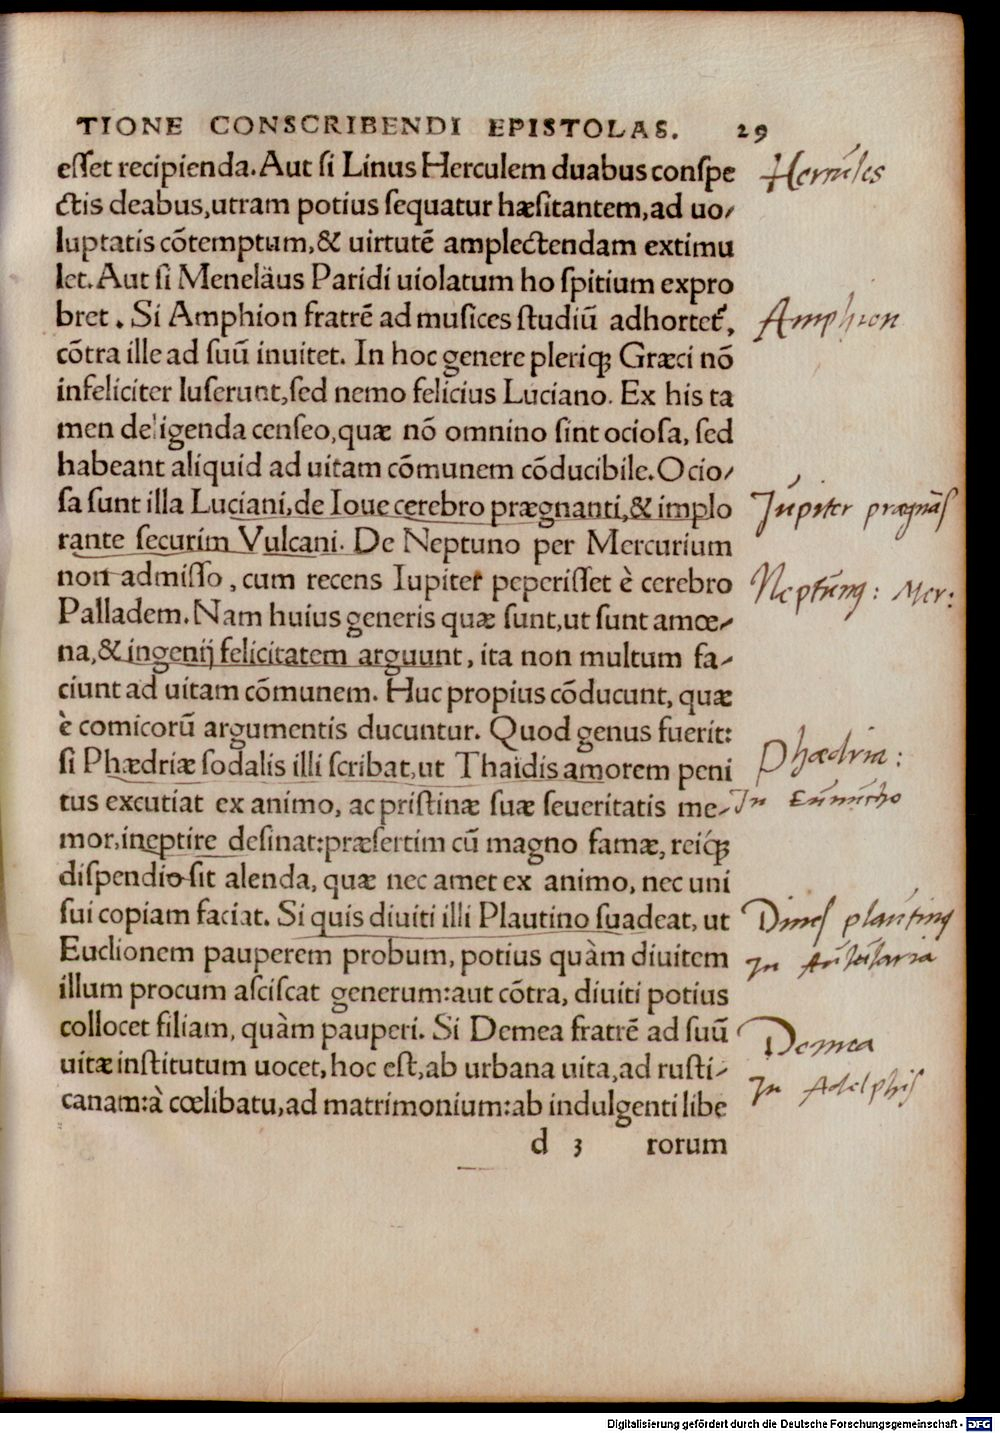 TIONE CONSCRIBENDI EPISTOLAS. 29
eſſet recipienda. Aut ſi Linus Herculem duabus conſpe
ctis deabus, utram potius ſequatur hæſitantem, ad uo⸗
luptatis cõtemptum, & uirtutẽ amplectendam extimu
let. Aut ſi Meneläus Paridi uiolatum ho ſpitium expro
bret. Si Amphion fratrẽ ad muſices ſtudiũ adhortet᷑,
cõtra ille ad ſuũ inuitet. In hoc genere pleriq; Græci nõ
infeliciter luſerunt, ſed nemo felicius Luciano. Ex his ta
men deligenda cenſeo, quæ nõ omnino ſint ocioſa, ſed
habeant aliquid ad uitam cõmunem cõducibile. Ocio⸗
ſa ſunt illa Luciani, de Ioue cerebro prægnanti, & implo
rante ſecurim Vulcani. De Neptuno per Mercurium
non admiſſo, cum recens Iupiter peperiſſet è cerebro
Palladem. Nam huius generis quæ ſunt, ut ſunt amœ⸗
na, & ingenij felicitatem arguunt, ita non multum fa⸗
ciunt ad uitam cõmunem. Huc propius cõducunt, quæ
è comicorũ argumentis ducuntur. Quod genus fuerit:
ſi Phædriæ ſodalis illi ſcribat, ut Thaidis amorem peni
tus excutiat ex animo, ac priſtinæ ſuæ ſeueritatis me⸗
mor, ineptire deſinat: præſertim cũ magno famæ, reiq́;
diſpendio ſit alenda, quæ nec amet ex animo, nec uni
ſui copiam faciat. Si quis diuiti illi Plautino ſuadeat, ut
Euclionem pauperem probum, potius quàm diuitem
illum procum aſciſcat generum: aut cõtra, diuiti potius
collocet filiam, quàm pauperi. Si Demea fratrẽ ad ſuũ
uitæ inſtitutum uocet, hoc eſt, ab urbana uita, ad ruſti⸗
canam: à cœlibatu, ad matrimonium: ab indulgenti libe
d 3 rorum
Hercules
Amphion
Jupiter prægnãs
Neptunꝰ: Mer:
Phædria:
In Eunucho
Diues plautinꝰ
In Aulularia
Demea
In Adelphis
Digitalisierung gefördert durch die Deutsche Forschungsgemeinschaft - DFG